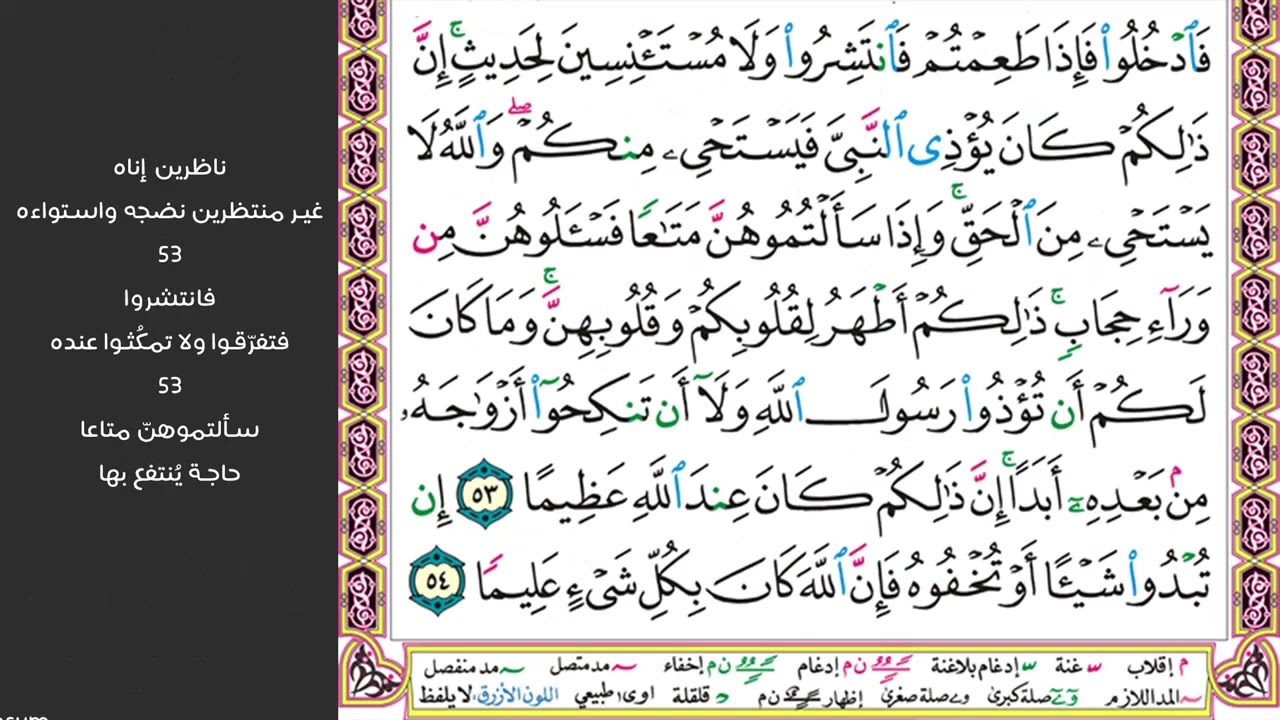 فَٱدْخُلُوا۟ فَإِذَا طَعِمْتُمْ فَٱنتَشِرُوا۟ وَلَا مُسْتَـْٔنِسِينَ لِحَدِيثٍ ۚ إِنَّ
ذَٰلِكُمْ كَانَ يُؤْذِى ٱلنَّبِىَّ فَيَسْتَحْىِۦ مِنكُمْ ۖ وَٱللَّهُ لَا
يَسْتَحْىِۦ مِنَ ٱلْحَقِّ ۚ وَإِذَا سَأَلْتُمُوهُنَّ مَتَٰعًا فَسْـَٔلُوهُنَّ مِن
وَرَآءِ حِجَابٍ ۚ ذَٰلِكُمْ أَطْهَرُ لِقُلُوبِكُمْ وَقُلُوبِهِنَّ ۚ وَمَا كَانَ
لَكُمْ أَن تُؤْذُوا۟ رَسُولَ ٱللَّهِ وَلَآ أَن تَنكِحُوٓا۟ أَزْوَٰجَهُۥ
مِنۢ بَعْدِهِۦٓ أَبَدًا ۚ إِنَّ ذَٰلِكُمْ كَانَ عِندَ ٱللَّهِ عَظِيمًا ٥٣ إِن
تُبْدُوا۟ شَيْـًٔا أَوْ تُخْفُوهُ فَإِنَّ ٱللَّهَ كَانَ بِكُلِّ شَىْءٍ عَلِيمًا ٥٤
م إقلاب غنة إدغام بلاغنة ن م إدغام ن م إخفاء مد متصل مد منفصل
المد اللازم صلة كبرى صلة صغرى إظهار ن م قلقلة د اوى طبيعي اللون الأزرق، لا يلفظ
ناظرين إناه
غير منتظرين نضجه واستواءه
53
فانتشروا
فتفرّقوا ولا تمكُثوا عنده
53
سألتموهنّ متاعا
حاجة يُنتفع بها